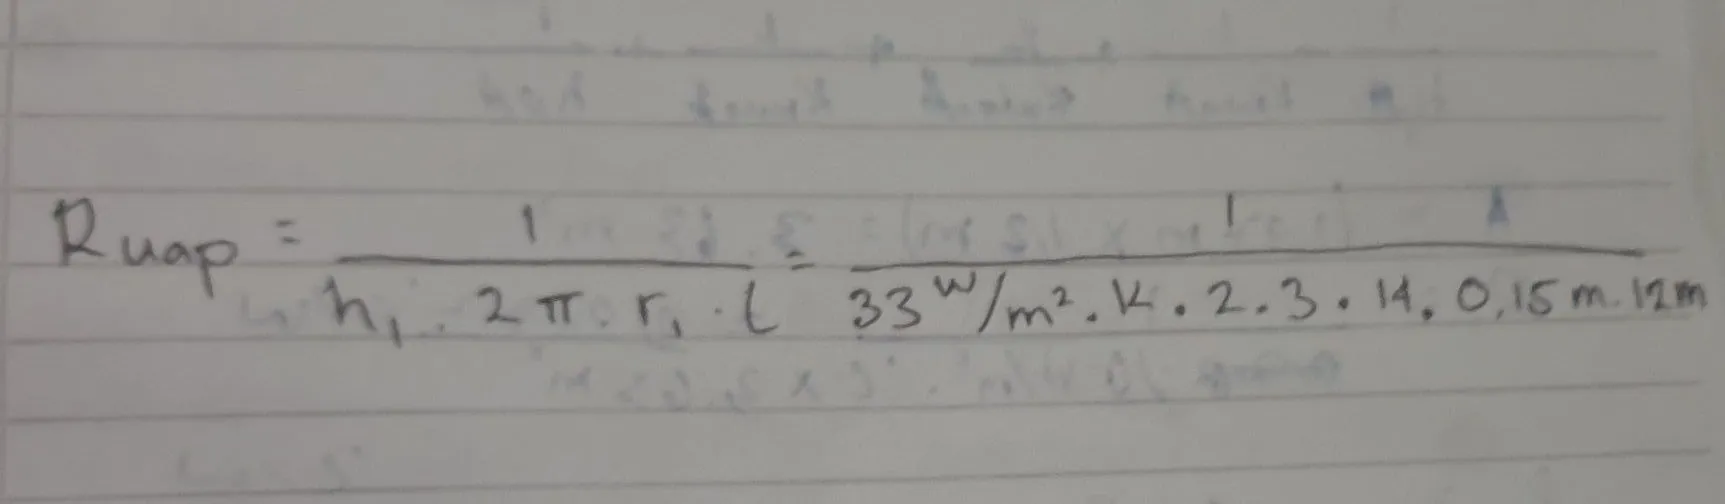 R uap = 1 / h₁ . 2 π . r₁ . l = 1 / 33 W/m² . K . 2 . 3 . 14 . 0,15 m . 12 m